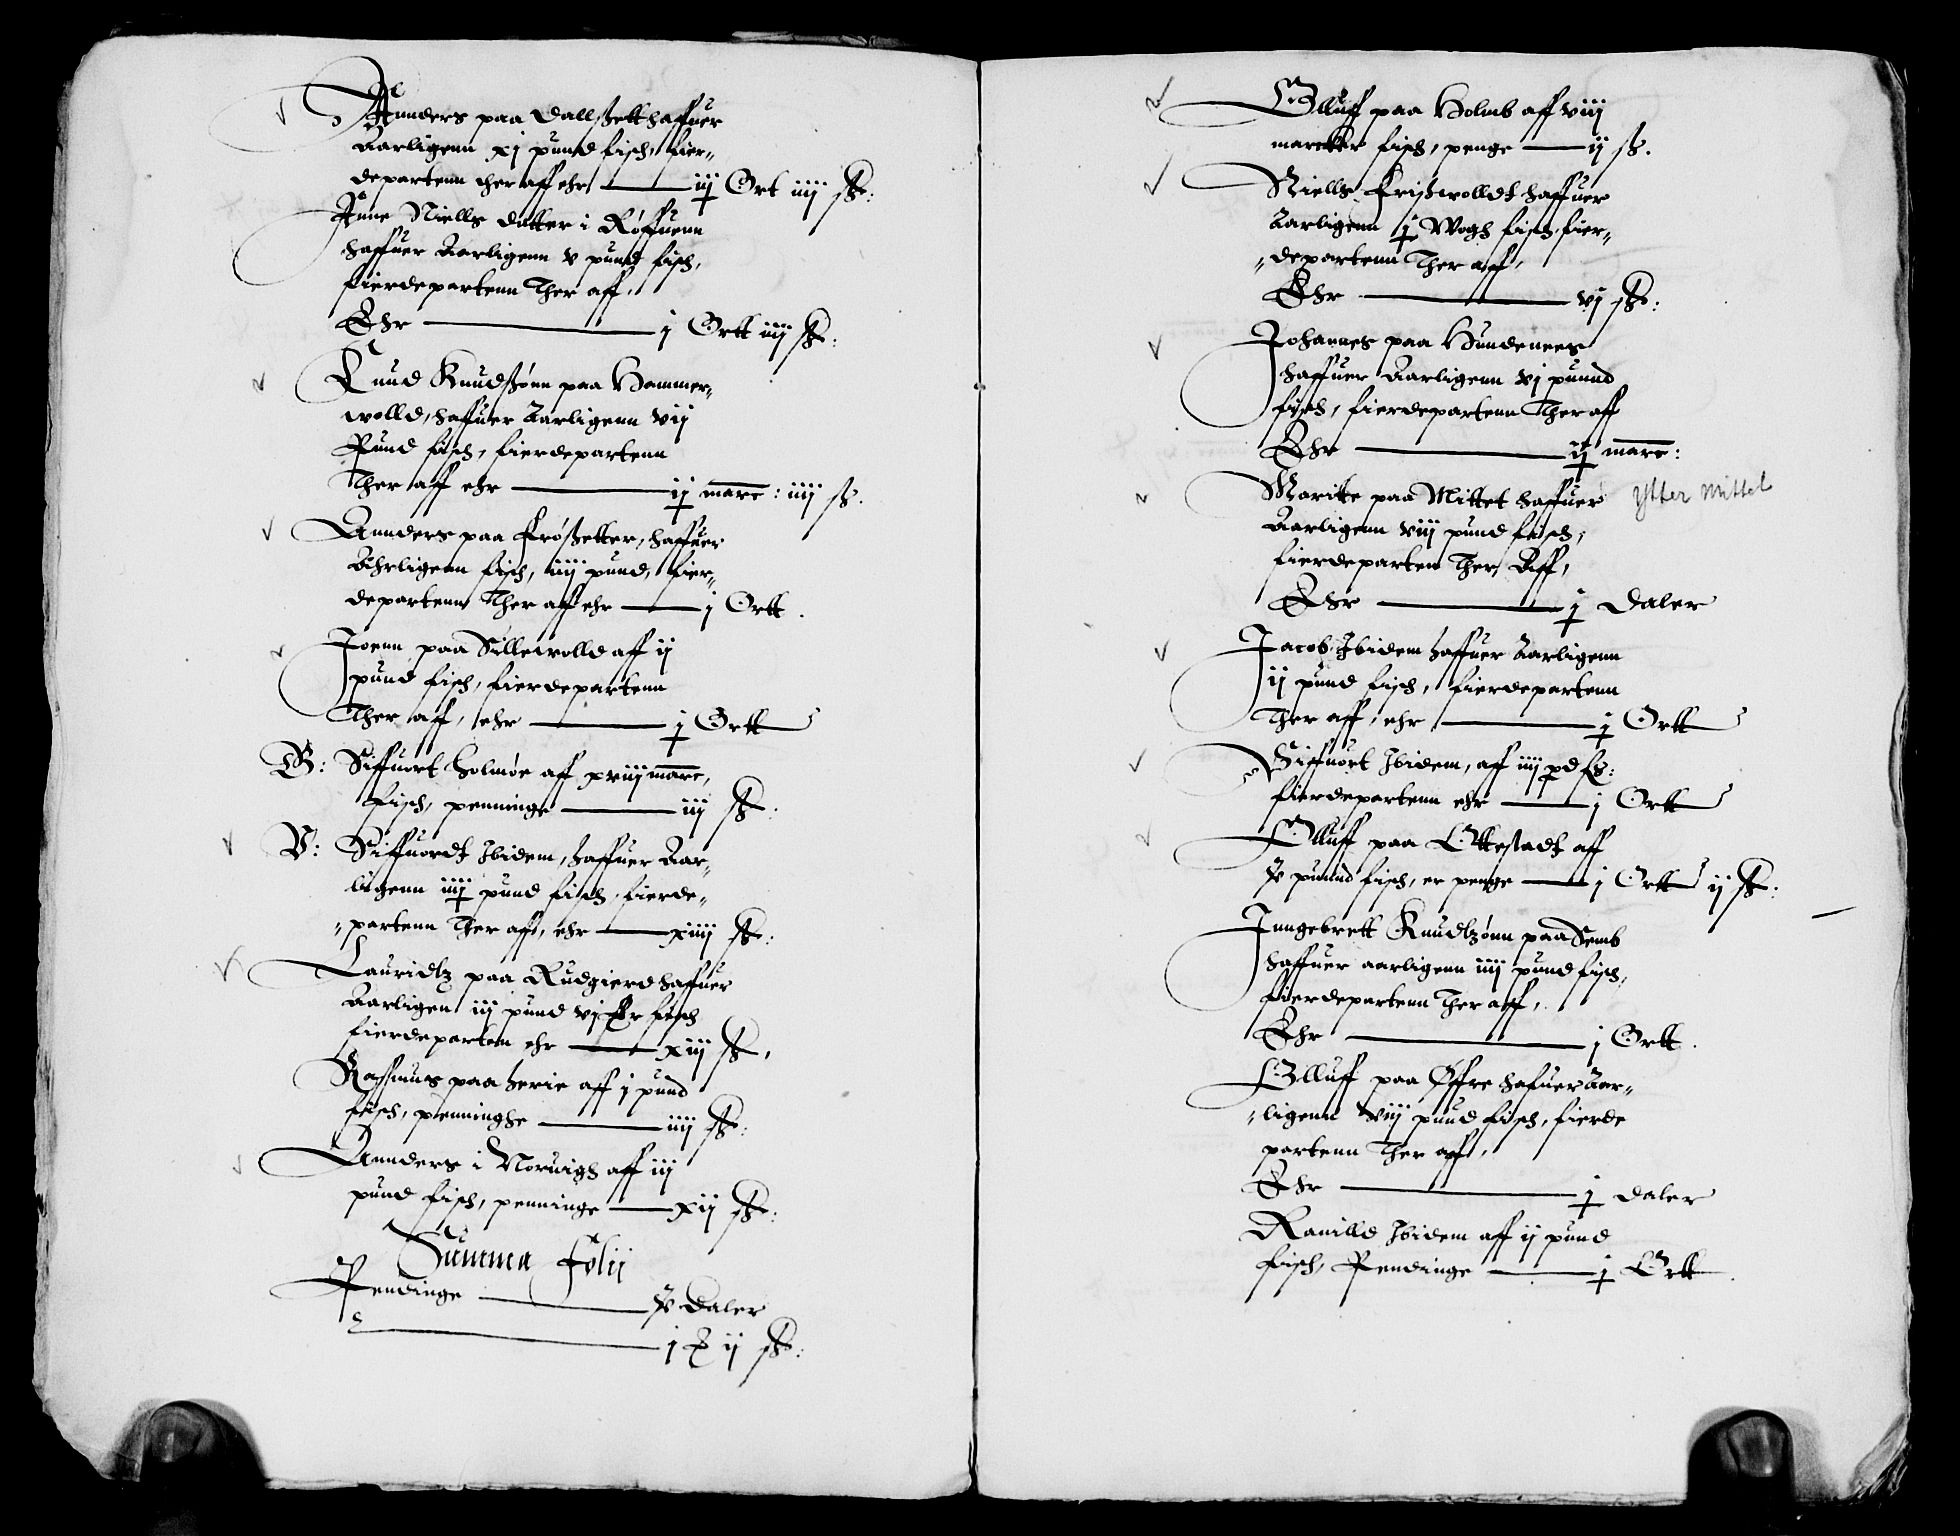 Annders paa Dallßett haffuer
Aarligenn xj pund fisch, fier-
departenn ther aff ehr — iij Ort iiij ß:
Anne Niells datter i Røffuenn
haffuer Aarligenn v pund fisch,
fierdepartenn Ther aff,
Ehr — j Ortt iiij ß:
Knud Knudßønn paa Hammer-
wolld, haffuer Aarligenn vij
Pund fisch, fierdepartenn
Ther aff ehr — ij marc: iiij ß.
Annders paa Frøßetter, haffuer
Ahrligenn fisch, iiij pund, fier-
departenn Ther aff ehr — j Ortt.
Joenn paa Sillewolld aff ij
pund fisch, fierdepartenn
Ther aff, ehr — j Ortt
B: Siffuort Holmøe aff xviij marc,
fisch, penninge — iij ß:
V: Siffuordt Ibidem, haffuer Aar-
ligenn iiij pund fisch fierde-
partenn Ther aff, ehr — xiiij ß:
Lauridtz paa Rudgierd haffuer
Aarligen iij pund vj fisch
fierdeparten ehr — xiij ß,
Rassmus paa herie aff j pund
fisch, penninghe — iiij ß:
Annders i Noruigh aff iij
pund fisch, penninge — xij ß:
Summa Folij
Pendinge — daler
— j ij ß:
Olluff paa Holmb aff viij
marcker fisch, penge — ij ß.
Niells Frißwolldt haffuer
Aarligenn j Wogh fisch, fier-
departenn Ther aff,
Ehr — vj ß:
Johannes paa Hundenees
haffuer Aarligenn vj puund
fisch, fierdepartenn Ther aff
Ehr — ij marc:
Maritte paa Mittet haffuer Ytter Mittel
Aarligenn viij pund fisch,
fierdeparten Ther Aff,
Ehr — j Daler
Jacob Ibidem haffuer Aarligenn
ij pund fisch, fierdepartenn
Ther aff, ehr — j Ortt
Siffuort Ibidem, aff iiij pd fß:
fierdepartenn ehr — j Ortt
Olluff paa Ottestadt aff
puund fisch, er penge — j Ortt ij ß:
Inngebrett Knudtzønn paa Semb
haffuer aarligenn iiij pund fisch,
fierdepartenn Ther aff,
Ehr — j Ortt.
Olluff paa Øffre haffuer Aar-
ligenn viij puud fisch, fierde
partenn Ther aff,
Ehr — j daler
Ranilld Ibidem aff ij pund
fisch, Pendinge — j Ortt.